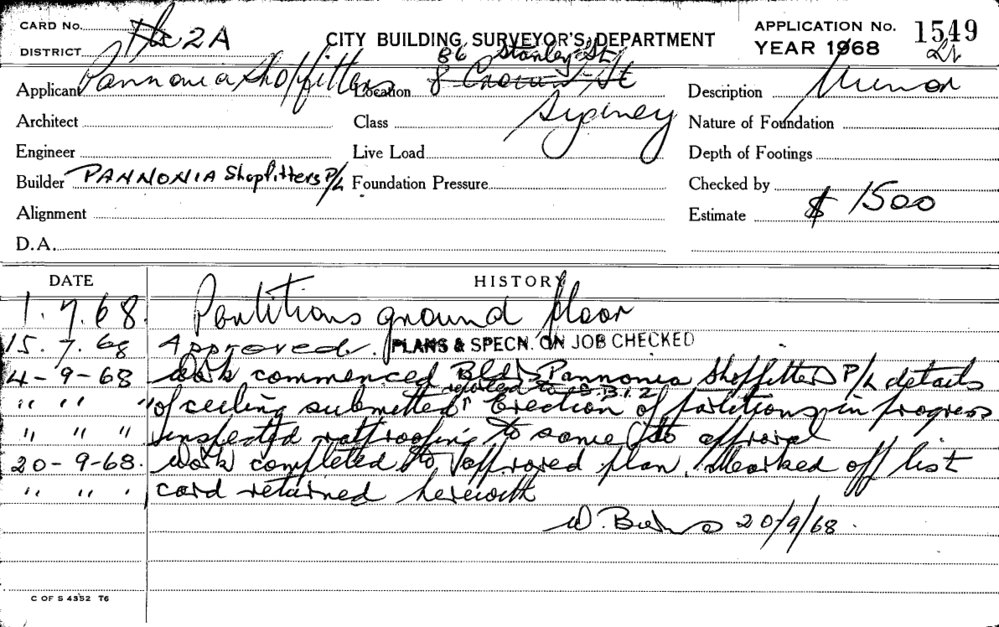 CARD No.
DISTRICT 2A
CITY BUILDING SURVEYOR'S DEPARTMENT
APPLICATION No. 1549
YEAR 1968
86 Stanley St
Applicant Pannonia Shopfitters
Location 8 Crown St
Sydney
Description Minor
Architect
Class
Nature of Foundation
Engineer
Live Load
Depth of Footings
Builder PANNONIA Shopfitters P/L
Foundation Pressure
Checked by
Alignment
Estimate $ 1500
D.A.
DATE HISTORY
1.7.68. Partitions ground floor
15.7.68 Approved. PLANS & SPECN. ON JOB CHECKED
4-9-68 Work commenced Bldr Pannonia Shopfitters P/L details
reported to S.B.I.2
" " " of ceiling submitted Erection of partitions in progress
" " " Inspected ratproofing to same to approval
20-9-68. Work completed to approved plan. Marked off list
" " " card returned herewith
W. 20/9/68.
C OF S 4352 76